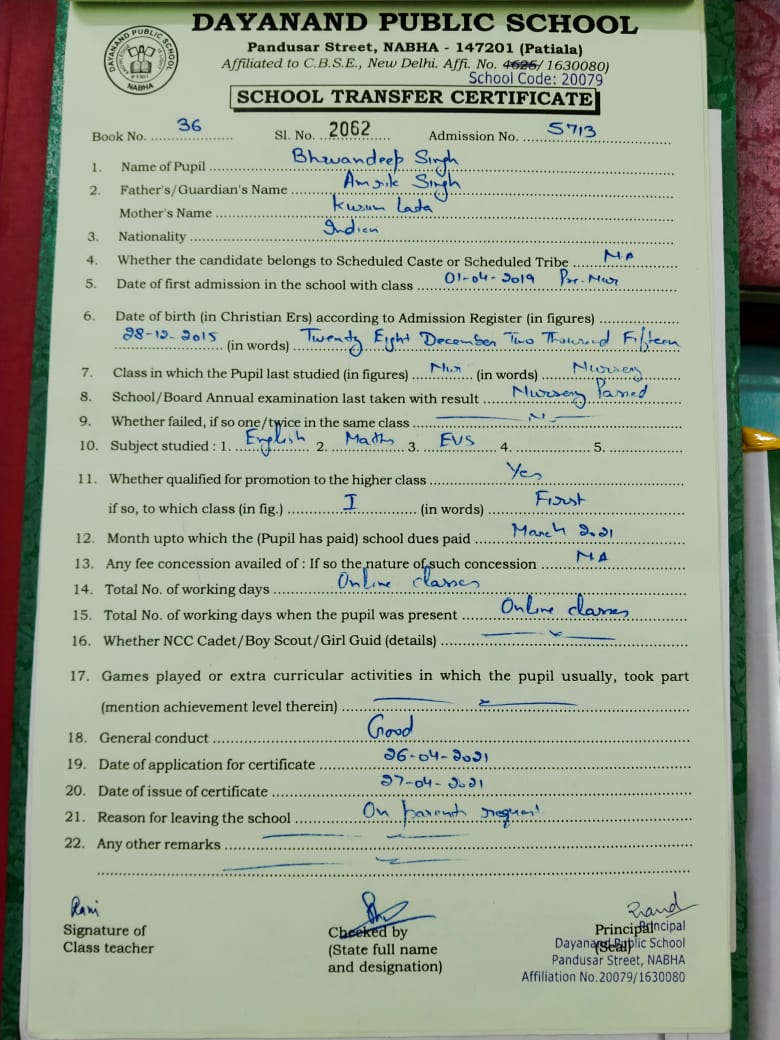 DAYANAND PUBLIC SCHOOL
DAYANAND PUBLIC SCHOOL
NABHA
Pandusar Street, NABHA - 147201 (Patiala)
Affiliated to C.B.S.E., New Delhi. Affi. No. 4626/ 1630080)
School Code: 20079
SCHOOL TRANSFER CERTIFICATE
Book No. 36 Sl. No. 2062 Admission No. 5713
1. Name of Pupil Bhwandeep Singh
2. Father's/Guardian's Name Amrik Singh
Mother's Name Kusum Lata
3. Nationality Indian
4. Whether the candidate belongs to Scheduled Caste or Scheduled Tribe NA
5. Date of first admission in the school with class 01-04-2019 Pre-Nur
6. Date of birth (in Christian Ers) according to Admission Register (in figures)
28-12-2015 (in words) Twenty Eight December Two Thousand Fifteen
7. Class in which the Pupil last studied (in figures) Nur (in words) Nursery
8. School/Board Annual examination last taken with result Nursery Passed
9. Whether failed, if so one/twice in the same class
10. Subject studied : 1. English 2. Maths 3. EVS 4. 5.
11. Whether qualified for promotion to the higher class Yes
if so, to which class (in fig.) I (in words) First
12. Month upto which the (Pupil has paid) school dues paid March 2021
13. Any fee concession availed of : If so the nature of such concession NA
14. Total No. of working days Online classes
15. Total No. of working days when the pupil was present Online classes
16. Whether NCC Cadet/Boy Scout/Girl Guid (details)
17. Games played or extra curricular activities in which the pupil usually, took part
(mention achievement level therein)
18. General conduct Good
19. Date of application for certificate 26-04-2021
20. Date of issue of certificate 27-04-2021
21. Reason for leaving the school On parents request
22. Any other remarks
Rani
Signature of
Class teacher
Checked by
(State full name
and designation)
Principal
(Seal)
Principal
Dayanand Public School
Pandusar Street, NABHA
Affiliation No.20079/1630080